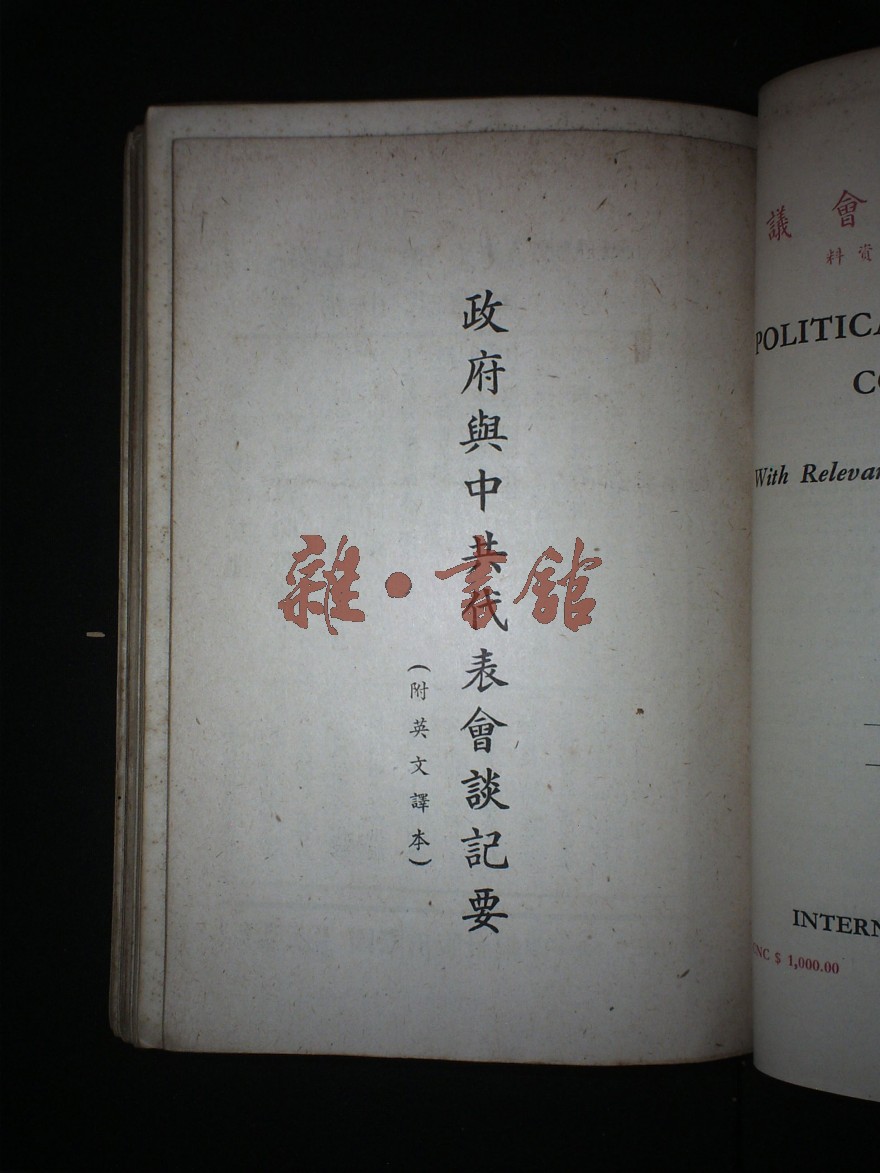 政府與中共代表會談記要
(附英文譯本)
雜·書館
會議
資料
POLITICA
CO
With Relevan
INTERN
CNC $ 1,000.00